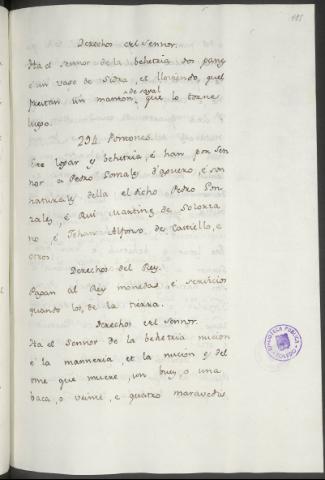 185
Derechos del Sennor.
Ha el Sennor de la behetria dos panes
e un vaso de Sidra, et lloviendo, quel
prestan un manton de sayal, que lo torne
luego.
294 Pomones.
Este logar es behetria, é han por Sen
nor a Pedro Gonzales d'Aguero, é son
naturales della el dicho Pedro Gon
zales, é Rui Martinez de Solorza
no, é Johan Alfonso de Castiello, e
otros.
Derechos del Rey.
Pagan al Rey monedas, é servicios
quando los de la tierra.
Derechos del Sennor.
Ha el Sennor de la behetria nucion
é la manneria, et la nucion es del
ome que muere, un buey, o una
baca, o veinte, e quatro maravedis.
BIBLIOTECA PUBLICA